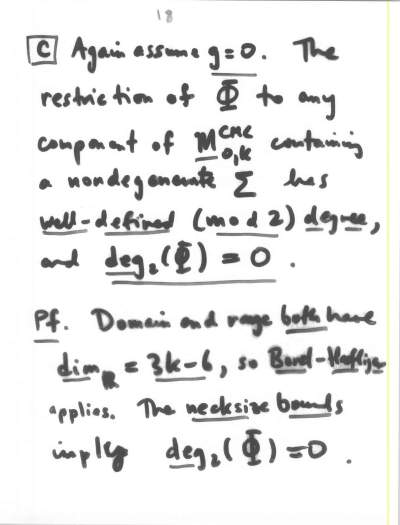 18
C Again assume g=0. The
restriction of Φ to any
component of M^{CMC}_{0,k} containing
a nondegenerate Σ has
well-defined (mod 2) degree,
and deg₂(Φ) = 0.
Pf. Domain and range both have
dim_ℝ = 3k-6, so Borel-Haefliger
applies. The necksize bounds
imply deg₂(Φ) = 0.